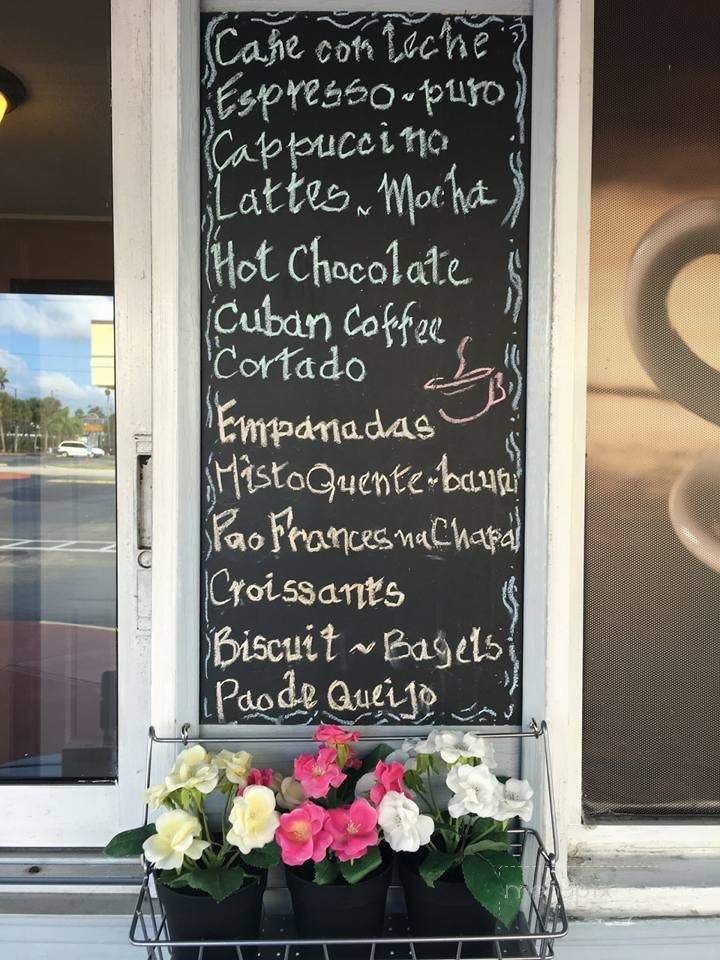 Cafe con leche
Espresso ~ puro
Cappuccino
Lattes ~ Mocha
Hot Chocolate
Cuban Coffee
Cortado
Empanadas
Misto Quente ~ bauru
Pao Frances na Chapa
Croissants
Biscuit ~ Bagels
Pao de Queijo